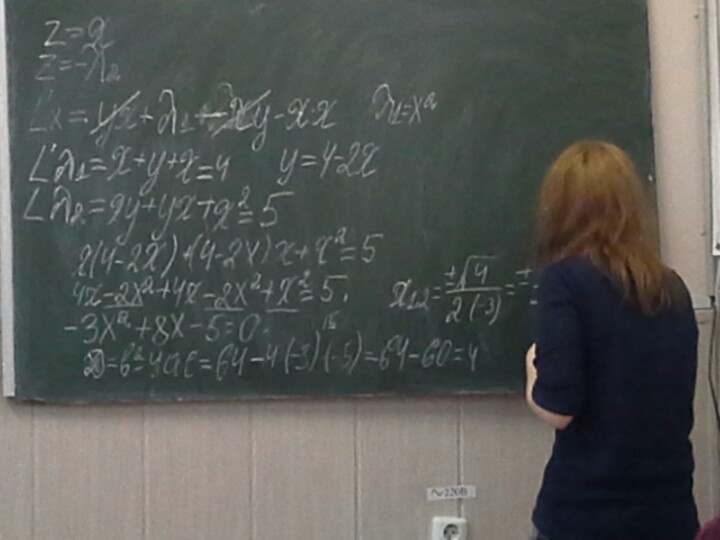 z = x
z = -λ₂
L'x = yx + λ₁ + λ₂xy - x·x λ₁ = x²
L'λ₁ = x + y + x = 4 y = 4 - 2x
L'λ₂ = xy + yx + x² = 5
x(4 - 2x) + (4 - 2x)x + x² = 5
4x - 2x² + 4x - 2x² + x² = 5.
-3x² + 8x - 5 = 0. 15
D = b² - 4ac = 64 - 4(-3)(-5) = 64 - 60 = 4
x₁,₂ = ±√4 / 2(-3) = ±
№220В